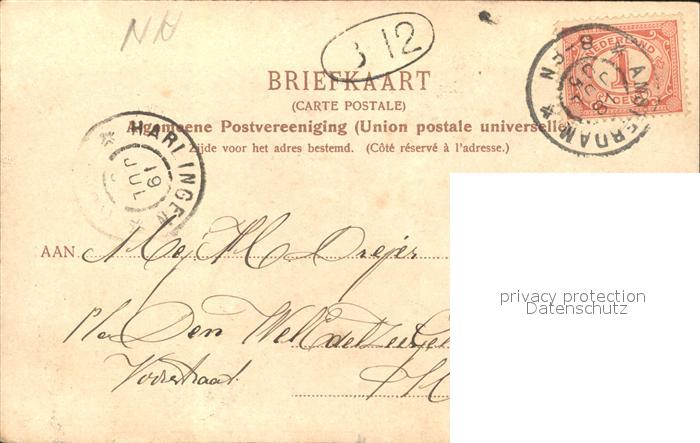 NH
B 12
NEDERLAND
1
AMSTERDAM
8-9 N
BRIEFKAART
(CARTE POSTALE)
Algemeene Postvereeniging (Union postale universelle
zijde voor het adres bestemd. (Côté réservé à l'adresse.)
HARLINGEN
19
JUL
AAN Mej. M. Dreijer
p/a Den
Voorstraat
privacy protection
Datenschutz